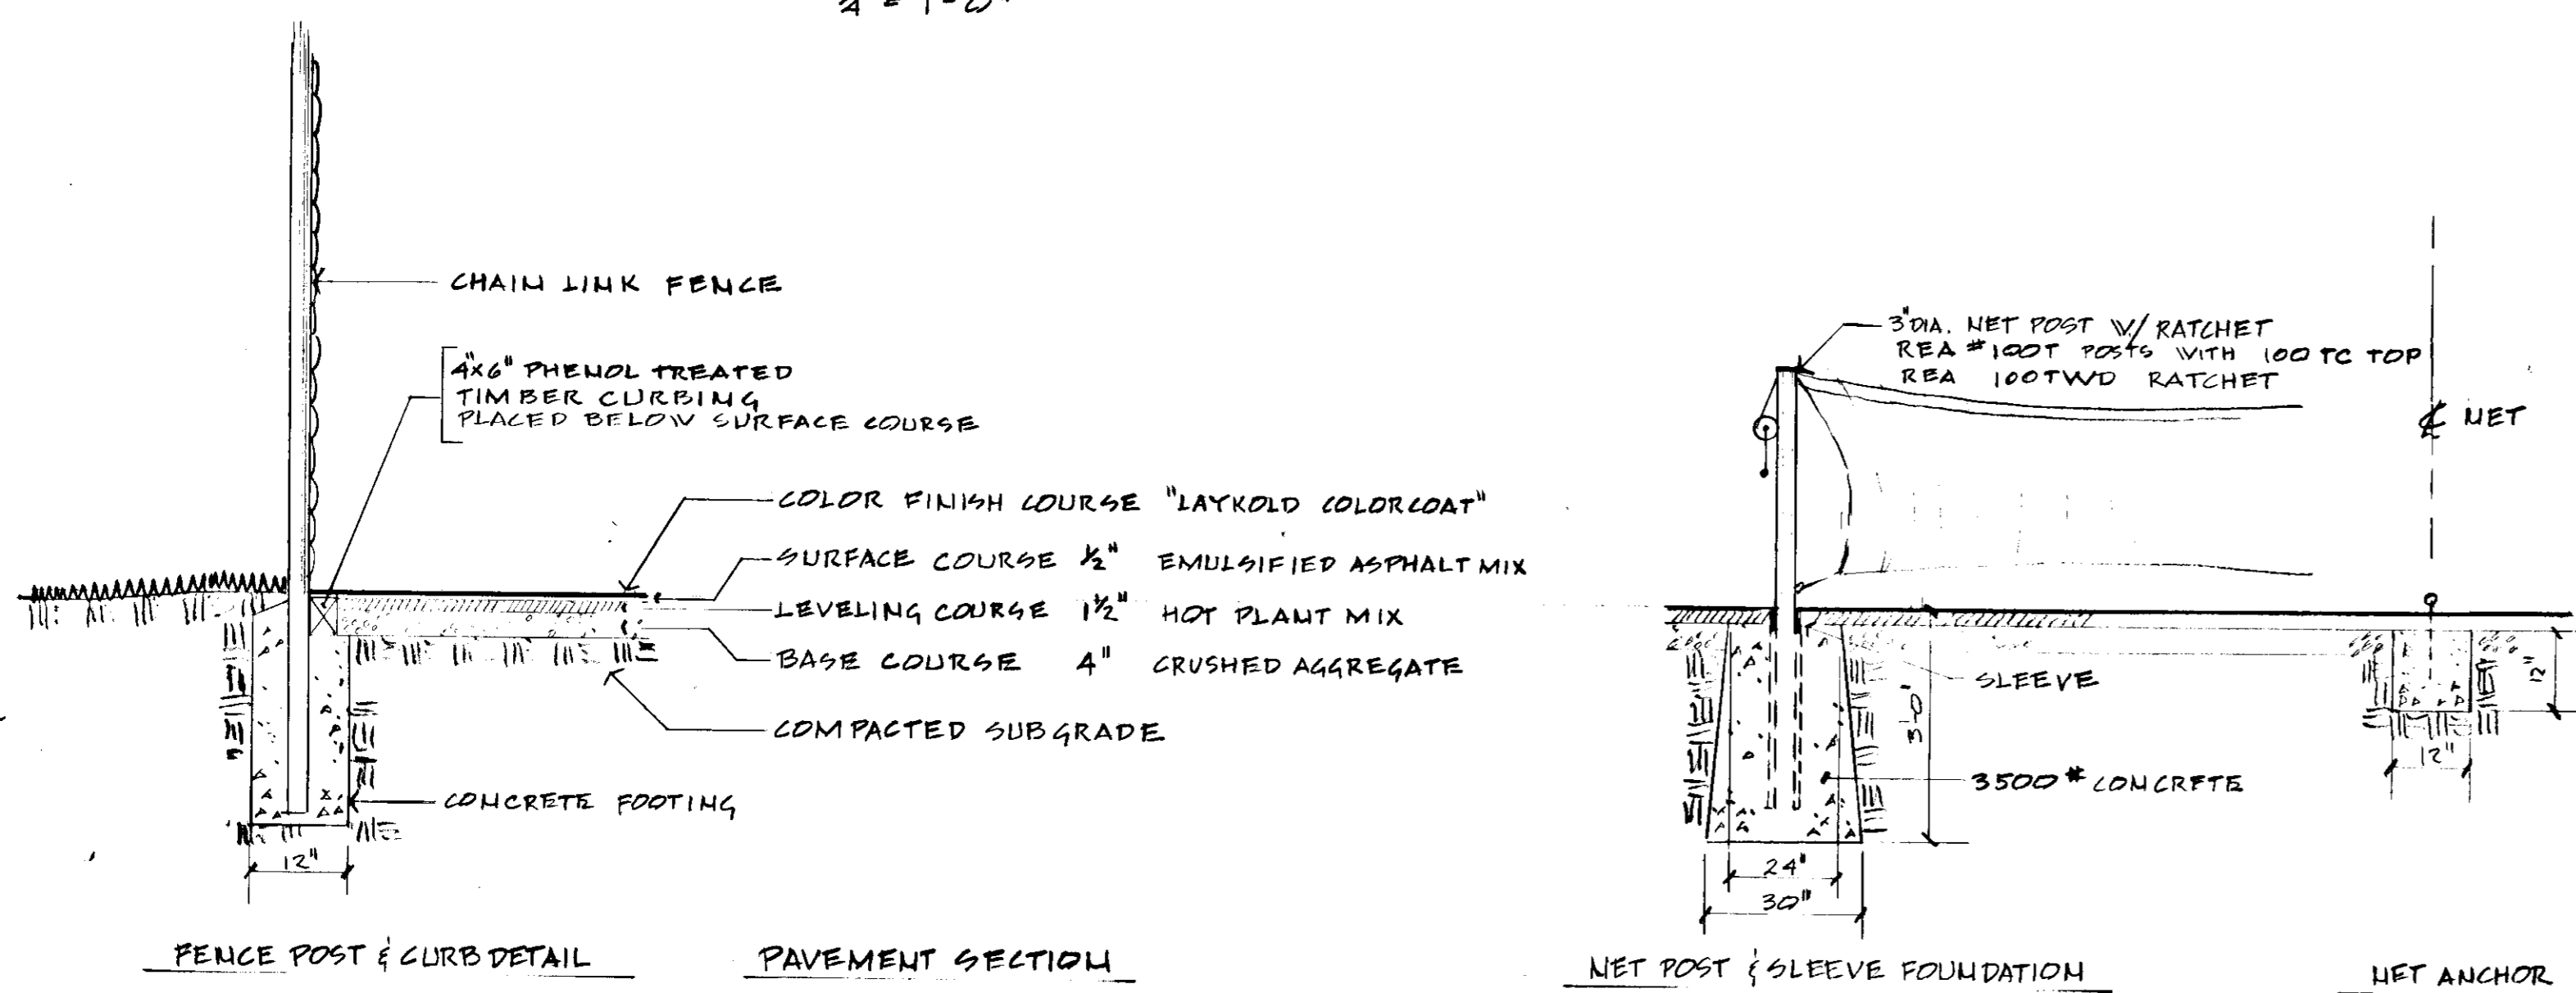 CHAIN LINK FENCE
4"x6" PHENOL TREATED
TIMBER CURBING
PLACED BELOW SURFACE COURSE
COLOR FINISH COURSE "LAYKOLD COLORCOAT"
SURFACE COURSE ½" EMULSIFIED ASPHALT MIX
LEVELING COURSE 1½" HOT PLANT MIX
BASE COURSE 4" CRUSHED AGGREGATE
COMPACTED SUBGRADE
CONCRETE FOOTING
12"
FENCE POST & CURB DETAIL
PAVEMENT SECTION
3" DIA. NET POST W/ RATCHET
REA #100T POSTS WITH 100 TC TOP
REA 100TWD RATCHET
℄ NET
SLEEVE
3'-0"
3500# CONCRETE
24"
30"
12"
12"
NET POST & SLEEVE FOUNDATION
NET ANCHOR